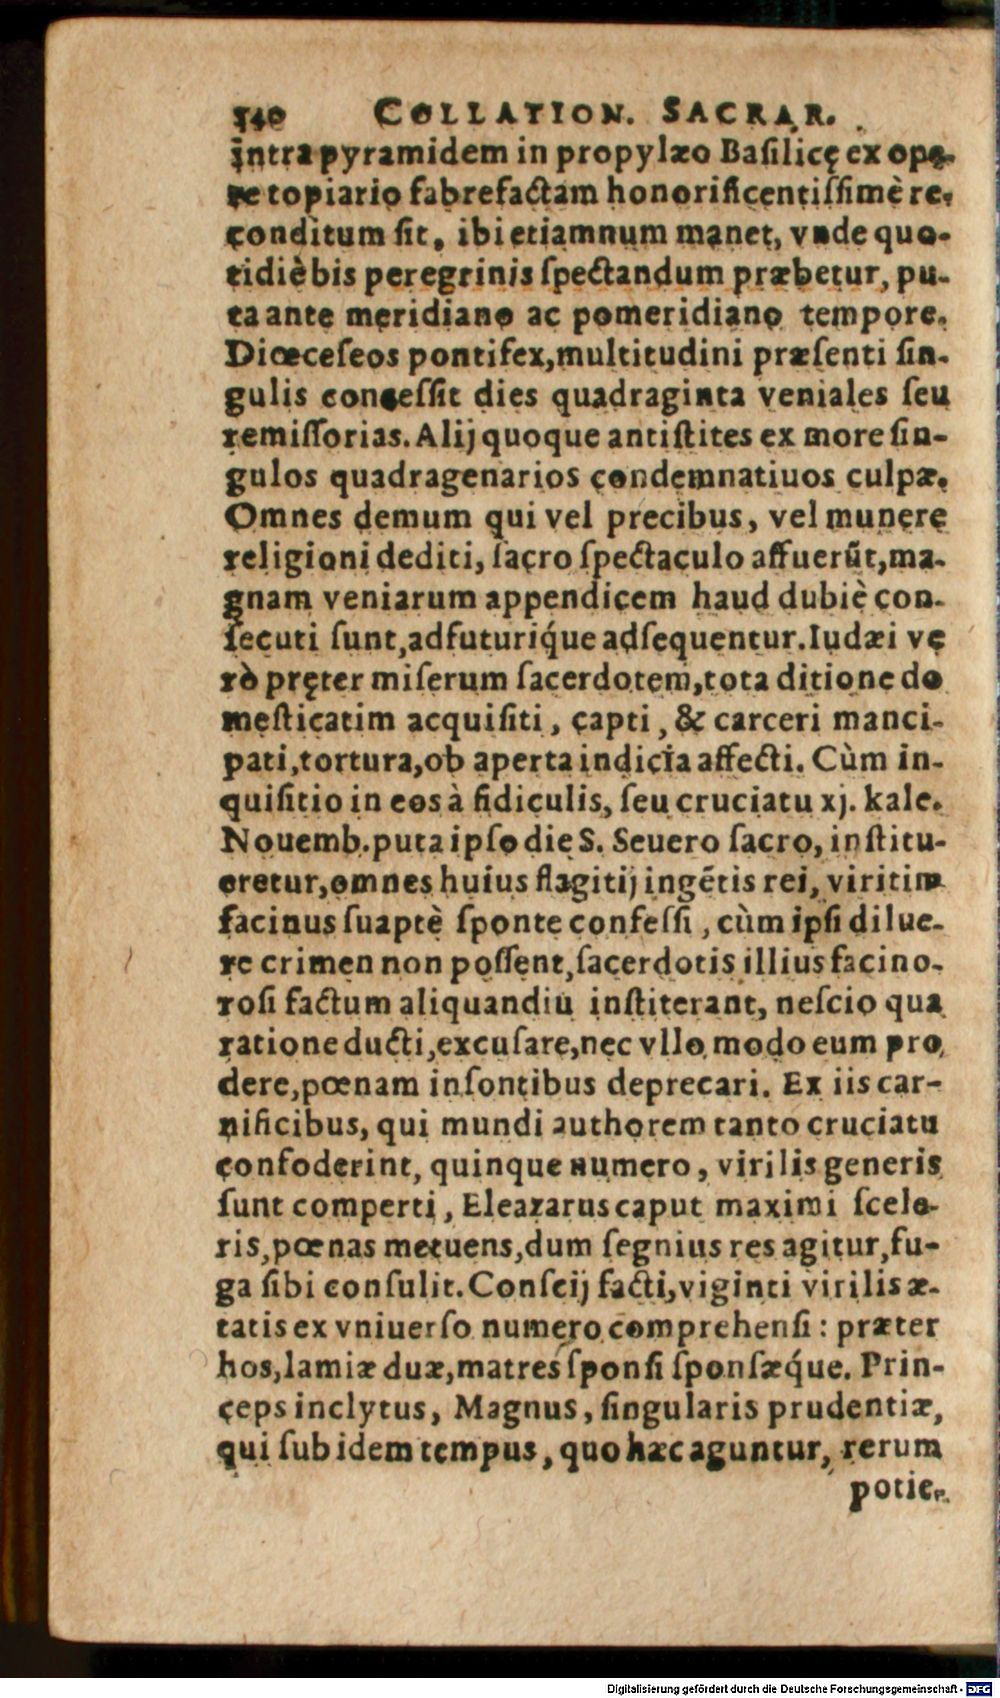 540 COLLATION. SACRAR.
intra pyramidem in propylæo Baſilicę ex ope-
re topiario fabrefactam honorificentiſſimè re-
conditum ſit, ibi etiamnum manet, vnde quo-
tidiè bis peregrinis ſpectandum præbetur, pu-
ta ante meridiano ac pomeridiano tempore.
Diœceſeos pontifex, multitudini præſenti ſin-
gulis conceſſit dies quadraginta veniales ſeu
remiſſorias. Alij quoque antiſtites ex more ſin-
gulos quadragenarios condemnatiuos culpæ.
Omnes demum qui vel precibus, vel munere
religioni dediti, ſacro ſpectaculo affuerũt, ma-
gnam veniarum appendicem haud dubiè con-
ſecuti ſunt, adfuturiq́ue adſequentur. Iudæi ve
rò pręter miſerum ſacerdotem, tota ditione do
meſticatim acquiſiti, capti, & carceri manci-
pati, tortura, ob aperta indicia affecti. Cùm in-
quiſitio in eos à fidiculis, ſeu cruciatu xj. kale.
Nouemb. puta ipſo die S. Seuero ſacro, inſtitu-
eretur, omnes huius flagitij ingẽtis rei, viritim
facinus ſuaptè ſponte confeſſi, cùm ipſi dilue-
re crimen non poſſent, ſacerdotis illius facino-
roſi factum aliquandiu inſtiterant, neſcio qua
ratione ducti, excuſare, nec vllo modo eum pro
dere, pœnam inſontibus deprecari. Ex iis car-
nificibus, qui mundi authorem tanto cruciatu
confoderint, quinque numero, virilis generis
ſunt comperti, Eleazarus caput maximi ſcele-
ris, pœnas metuens, dum ſegnius res agitur, fu-
ga ſibi conſulit. Conſcij facti, viginti virilis æ-
tatis ex vniuerſo numero comprehenſi: præter
hos, lamiæ duæ, matres ſponſi ſponſæq́ue. Prin-
ceps inclytus, Magnus, ſingularis prudentiæ,
qui ſub idem tempus, quo hæc aguntur, rerum
potie-
Digitalisierung gefördert durch die Deutsche Forschungsgemeinschaft - DFG